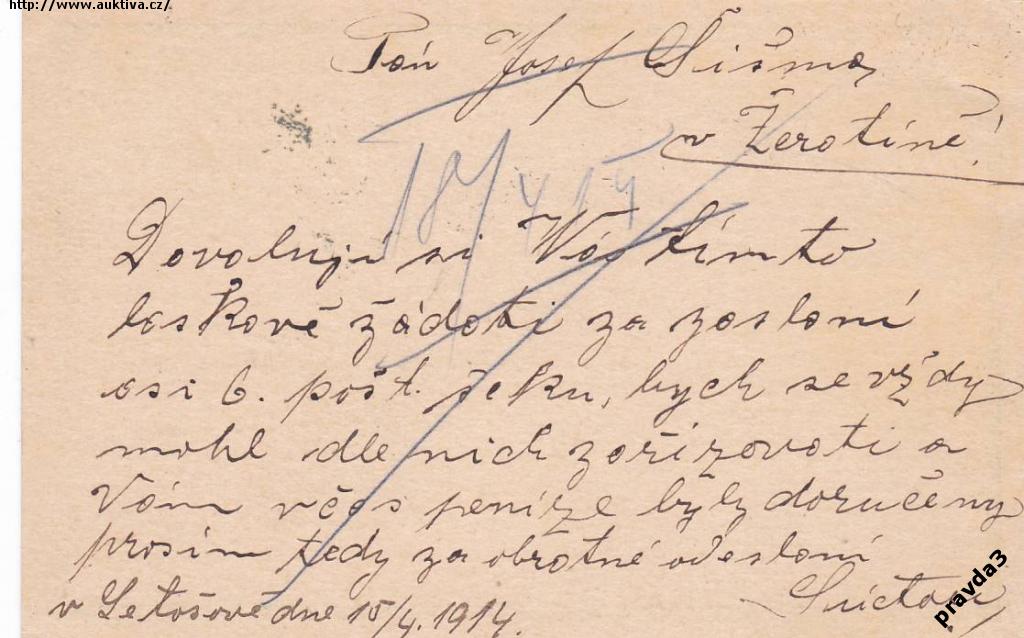 http://www.auktiva.cz/
Pán Josef Šišma,
v Žerotíně!
18/4 14
Dovoluji si Vás tímto
laskavě žádati za zaslání
asi 6. pošt. šeku, bych se vždy
mohl dle nich zařizovati a
Vám včas peníze byly doručeny
prosím tedy za obratné odeslání
v Letošově dne 15/4. 1914.
pravda3